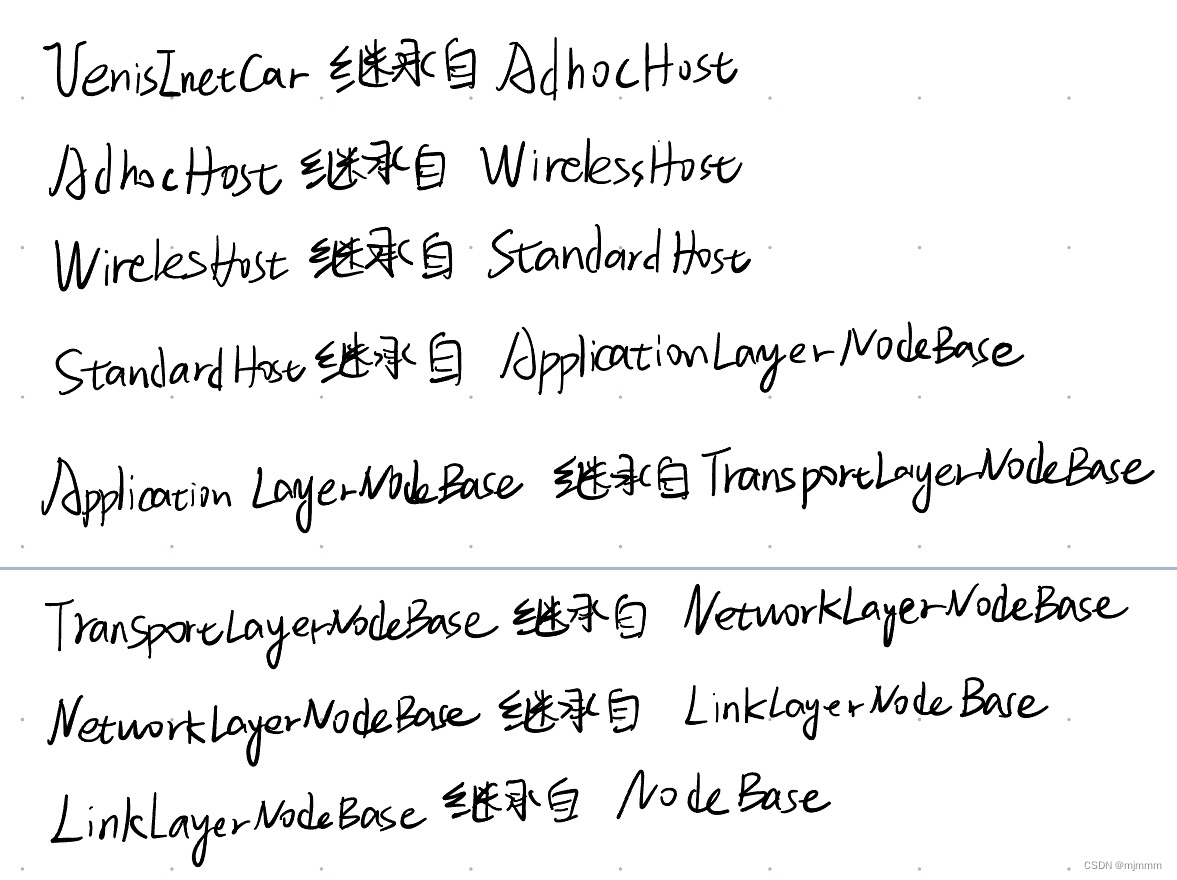 VenisInetCar 继承自 AdhocHost
AdhocHost 继承自 WirelessHost
WirelesHost 继承自 StandardHost
StandardHost 继承自 ApplicationLayerNodeBase
Application LayerNodeBase 继承自 TransportLayerNodeBase
TransportLayerNodeBase 继承自 NetworkLayerNodeBase
NetworkLayerNodeBase 继承自 LinkLayerNodeBase
LinkLayerNodeBase 继承自 NodeBase
CSDN @mjmmm